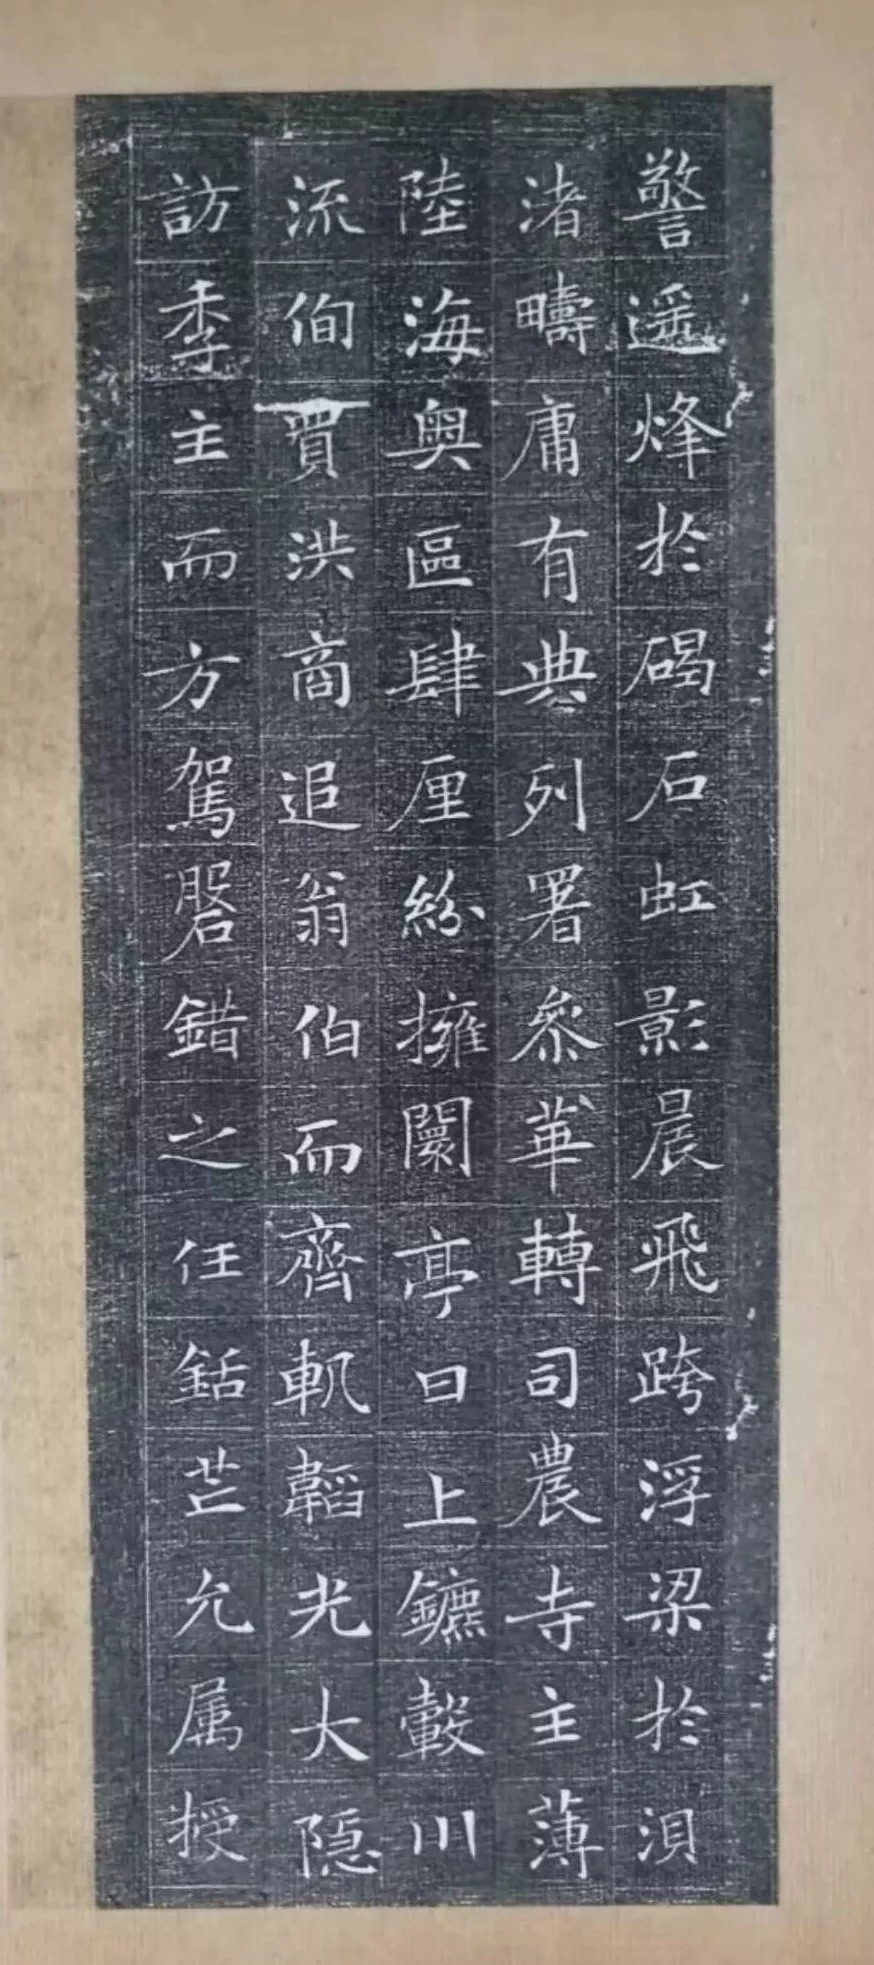 警遥烽於碣石虹影晨飛跨浮梁於浿
渚疇庸有典列署叅華轉司農寺主薄
陸海奥區肆厘紛擁闤亭日上鑣轂川
流佪買洪商追翁伯而齊軌韜光大隐
訪季主而方駕磐錯之任銛芒允属授